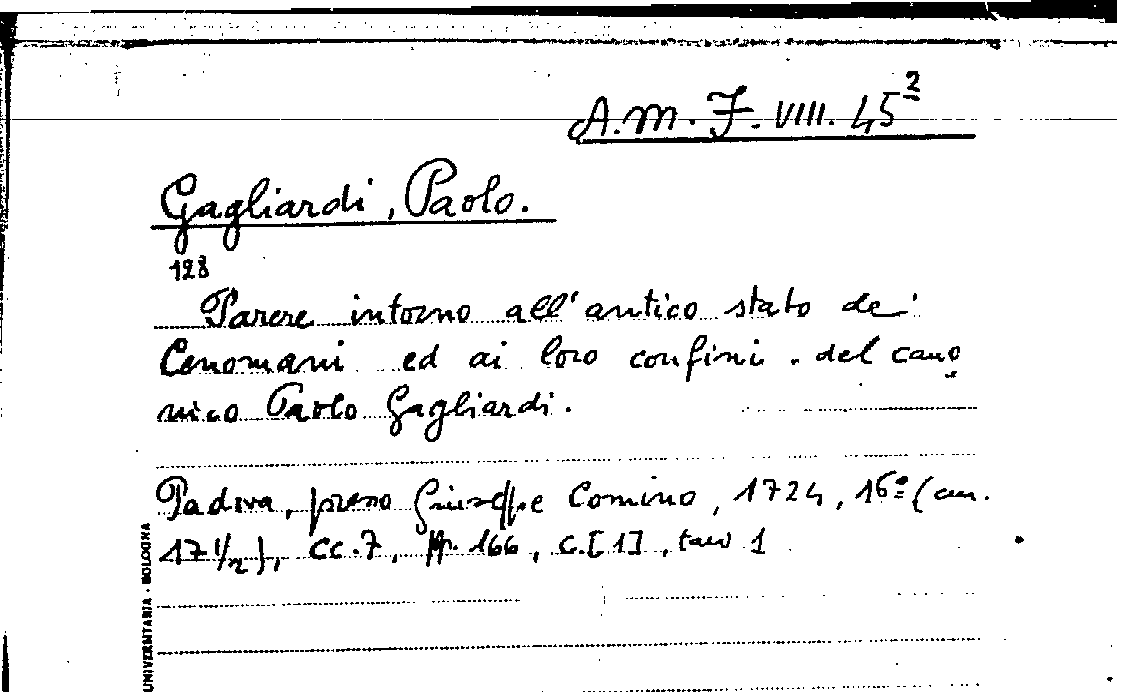 A.M. F. VIII. 45²
Gagliardi, Paolo.
128
Parere intorno all'antico stato de'
Cenomani ed ai loro confini. del cano
nico Paolo Gagliardi.
Padova, presso Giuseppe Comino, 1724, 16º (cm.
17½), cc. 7, pp. 166, c. [1], tav 1
UNIVERSITARIA - BOLOGNA